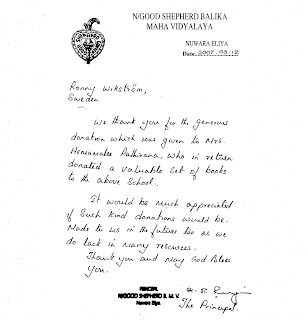 N/GOOD SHEPHERD BALIKA
MAHA VIDYALAYA
NUWARA ELIYA
Date. 2007.09.12
Ronny Wikström,
Sweden
We thank you for the generous
donation which was given to Mrs.
Hemamalee Pathirana, who in return
donated a valuable set of books
to the above School.
It would be much appreciated
if Such kind donations would be
Made to us in the future too as we
do lack in Many resources.
Thank you and May God Bless
You.
PRINCIPAL
N/GOOD SHEPHERD B. M. V.
Nuwara Eliya.
The Principal.